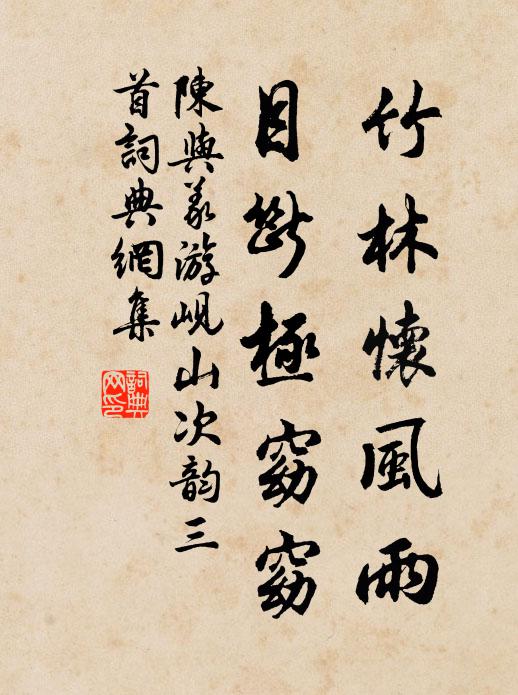 竹林懷風雨
目斷極窈窈
陳與義游峴山次韵三
首詞典網集
詞典網印